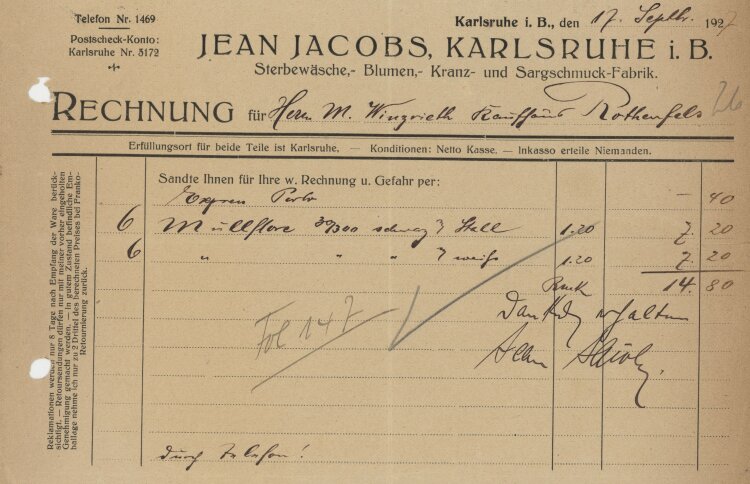 Telefon Nr. 1469
Postscheck-Konto:
Karlsruhe Nr. 3172
Karlsruhe i. B., den 17. Septbr. 1927
JEAN JACOBS, KARLSRUHE i. B.
Sterbewäsche,- Blumen,- Kranz- und Sargschmuck-Fabrik.
RECHNUNG für Herrn M. Kaufhaus Rothenfels
Erfüllungsort für beide Teile ist Karlsruhe. — Konditionen: Netto Kasse. — Inkasso erteile Niemanden.
Sandte Ihnen für Ihre w. Rechnung u. Gefahr per:
Porto — 40
6 schwarz 1.20 7. 20
6 " " " weiß 1.20 7. 20
14. 80
Dankend erhalten
Jean Jacobs
Fol 147
durch Telefon!
Reklamationen werden nur 8 Tage nach Empfang der Ware berück-
sichtigt. — Retoursendungen dürfen nur mit meiner vorher eingeholten
Genehmigung gemacht werden. — In gutem Zustand befindliche Em-
ballage nehme ich nur zu 2 Drittel des berechneten Preises bei Franko-
Retournierung zurück.